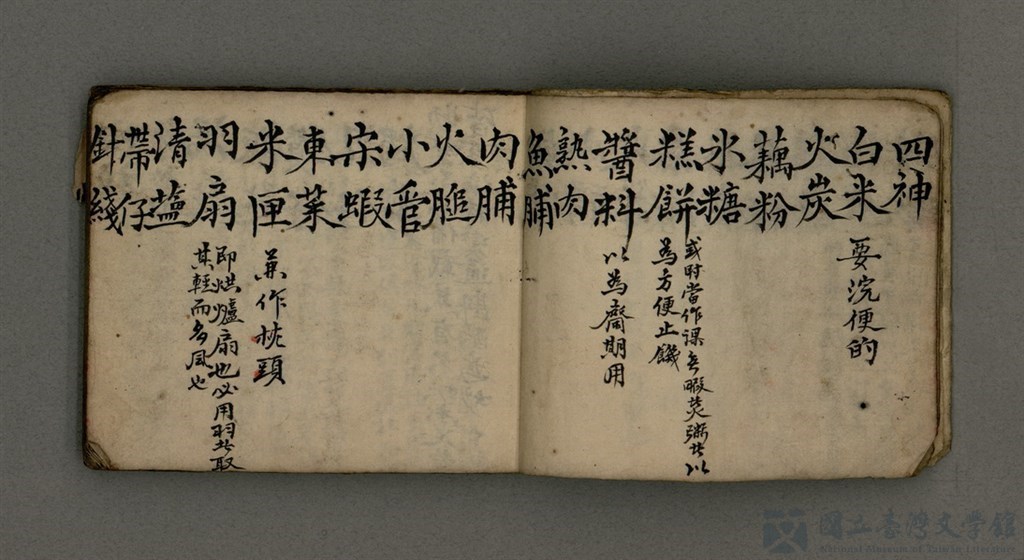 四神
白米 要浣便的
火炭
藕粉
氷糖
糕餅 或时當作課無暇煑粥者以
為方便止饑
醬料 以為齋期用
熟肉
魚脯
肉脯
火腿
小管
宋蝦
東菜
米匣 兼作枕頭
羽扇 即烘爐扇也必用羽者取
其輕而多風也
清蓝
帶仔
針綫
國立臺灣文学館
National Museum of Taiwan Literature